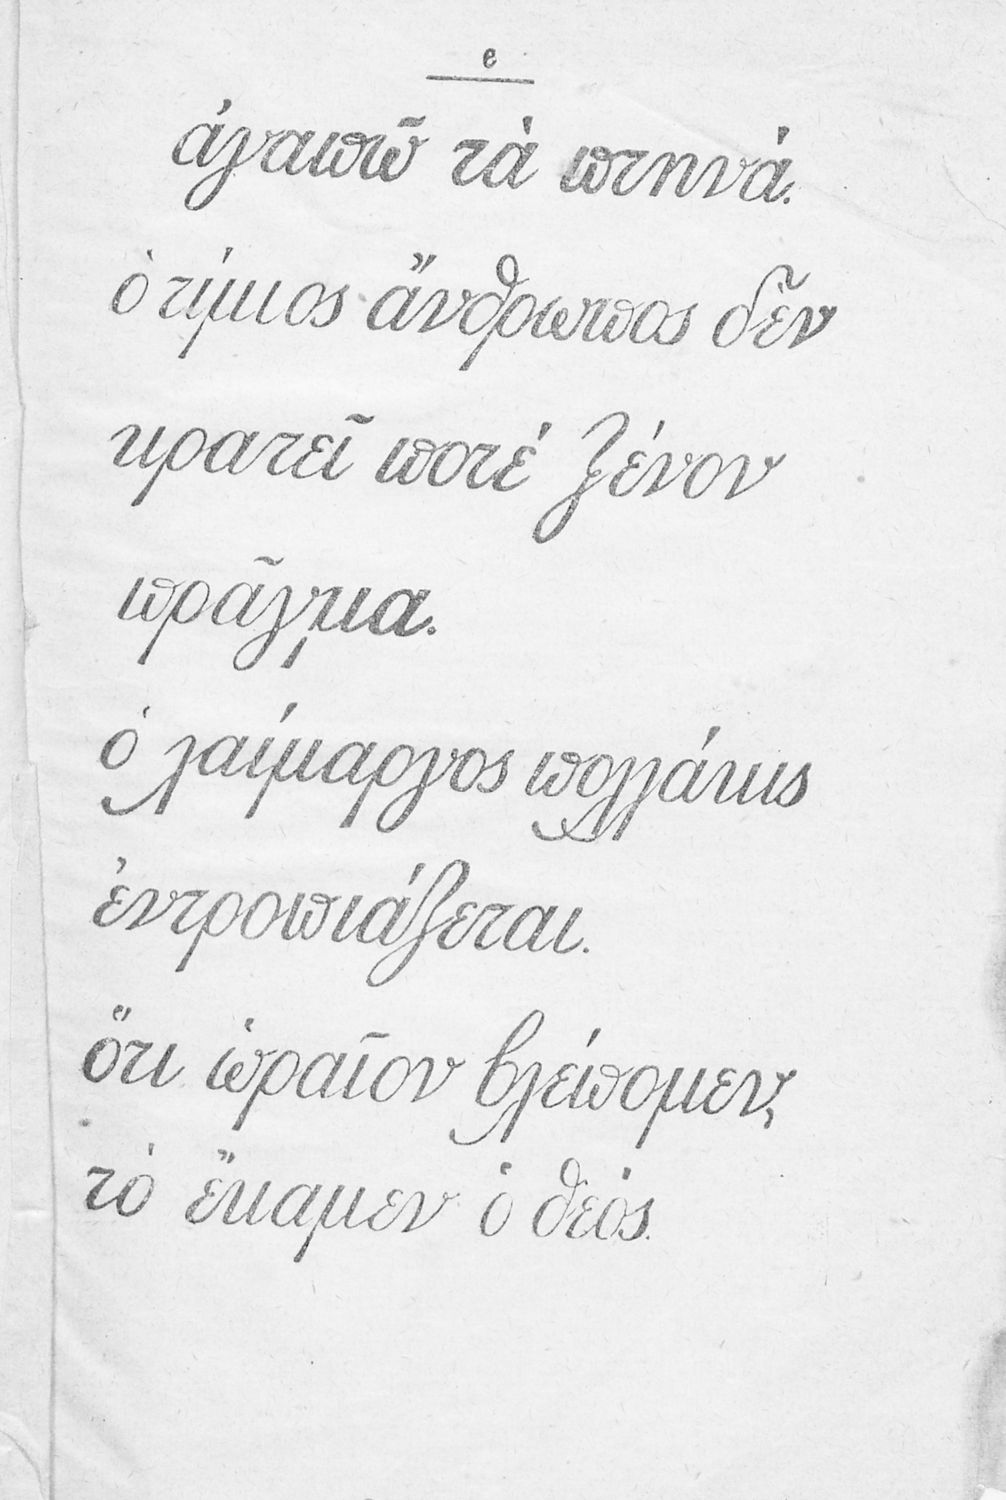 e
ἀγαπῶ τὰ πτηνά.
ὁ τίμιος ἄνθρωπος δε͂ν
κρατεῖ ποτέ ξένον
πρᾶγμα.
ὁ λαίμαργος πολλάκις
ἐντροπιάζεται.
ὅτι ὡραῖον βλέπομεν,
τὸ ἔκαμεν ὁ θεός.